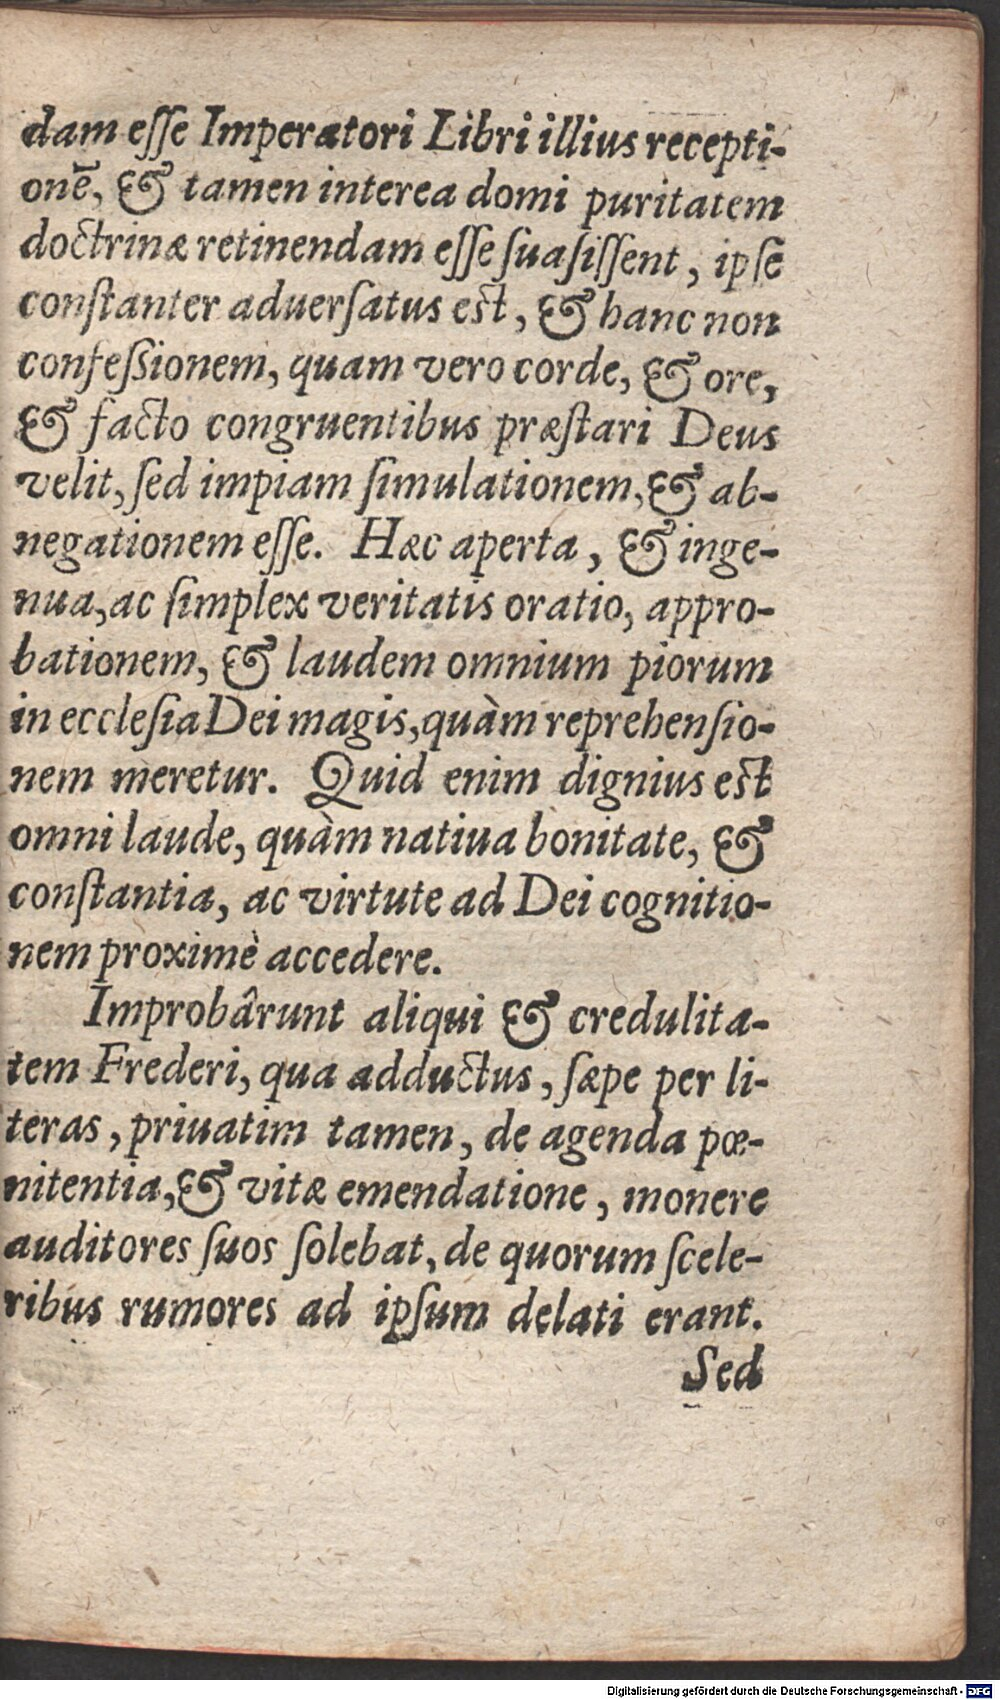 dam eſſe Imperatori Libri illius recepti-
onē, & tamen interea domi puritatem
doctrinæ retinendam eſſe ſuaſiſſent, ipſe
conſtanter aduerſatus est, & hanc non
confeſsionem, quam vero corde, & ore,
& facto congruentibus præſtari Deus
velit, ſed impiam ſimulationem, & ab-
negationem eſſe. Hæc aperta, & inge-
nua, ac ſimplex veritatis oratio, appro-
bationem, & laudem omnium piorum
in eccleſia Dei magis, quàm reprehenſio-
nem meretur. Quid enim dignius est
omni laude, quàm natiua bonitate, &
conſtantia, ac virtute ad Dei cognitio-
nem proximè accedere.
Improbârunt aliqui & credulita-
tem Frederi, qua adductus, ſæpe per li-
teras, priuatim tamen, de agenda pœ-
nitentia, & vitæ emendatione, monere
auditores ſuos ſolebat, de quorum ſcele-
ribus rumores ad ipſum delati erant.
Sed
Digitalisierung gefördert durch die Deutsche Forschungsgemeinschaft - DFG